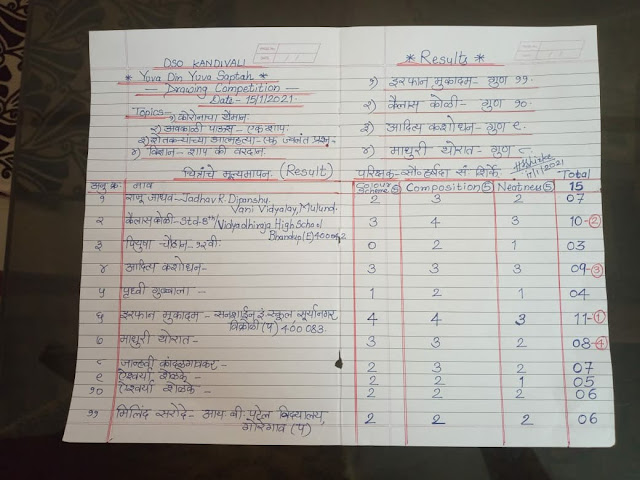 DSO KANDIVALI
* Yuva Din Yuva Saptah *
— Drawing Competition —
Date- 15/1/2021.
Topics- १) कोरोनाचा थैमान.
२) अवकाळी पाऊस - एक शाप.
३) शेतकऱ्यांच्या आत्महत्या - एक ज्वलंत प्रश्न.
४) विज्ञान - शाप की वरदान.
* Results *
१) इरफान मुकादम - गुण ११.
२) कैलास कोळी - गुण १०.
३) आदित्य कशोधन - गुण ९.
४) माधुरी थोरात - गुण ८.
चित्रांचे मूल्यमापन. (Result)
परिक्षक - सं. शिर्के.
अनु क्र. नाव Colour Scheme ⑤ Composition ⑤ Neatness ⑤ Total 15
१ राजू जाधव - Jadhav R. Dipanshu. 2 3 2 07
Vani Vidyalay, Mulund.
२ कैलास कोळी - Std-8th/Vidyadhiraja High School 3 4 3 10-②
Bhandup (E) 400042
३ पियुषा चौहान - १२वी. 0 2 1 03
४ आदित्य कशोधन - 3 3 3 09-③
५ पृथ्वी गुव्वाला - 1 2 1 04
६ इरफान मुकादम - सनशाईन इं. स्कूल, सूर्यानगर, 4 4 3 11-①
विक्रोळी (प) 400 083.
७ माधुरी थोरात - 3 3 2 08-④
८ जान्हवी कांदळगावकर - 2 3 2 07
९ ऐश्वर्या शेळके - 2 2 1 05
१० ऐश्वर्या शेळके - 2 2 2 06
११ मिलिंद सरोदे - आय. बी. पटेल विद्यालय, 2 2 2 06
गोरेगाव (प)